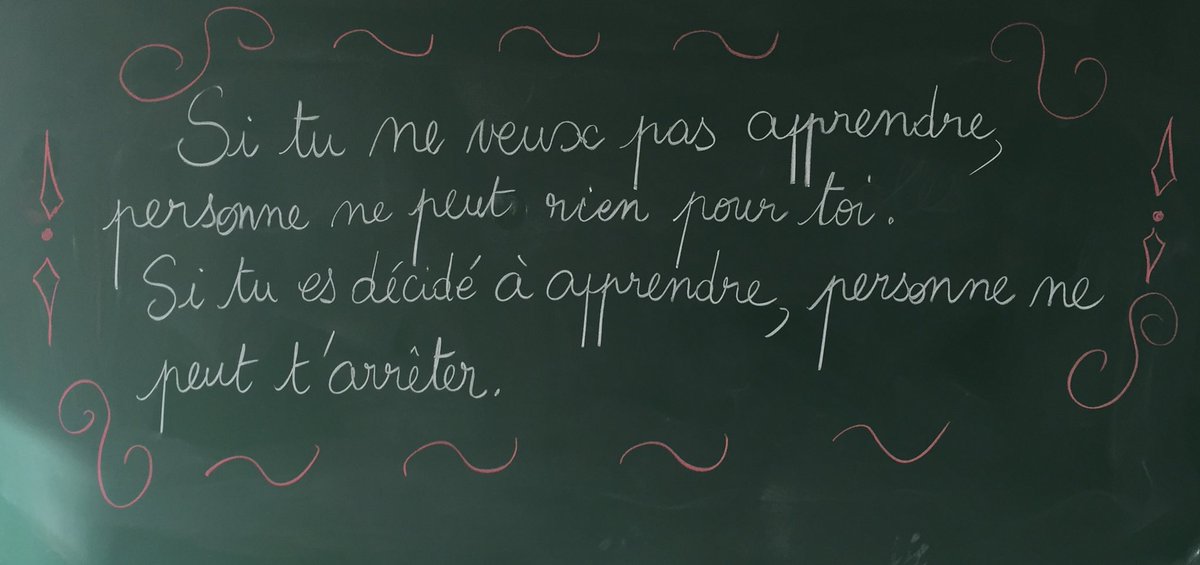 Si tu ne veux pas apprendre,
personne ne peut rien pour toi.
Si tu es décidé à apprendre, personne ne
peut t'arrêter.